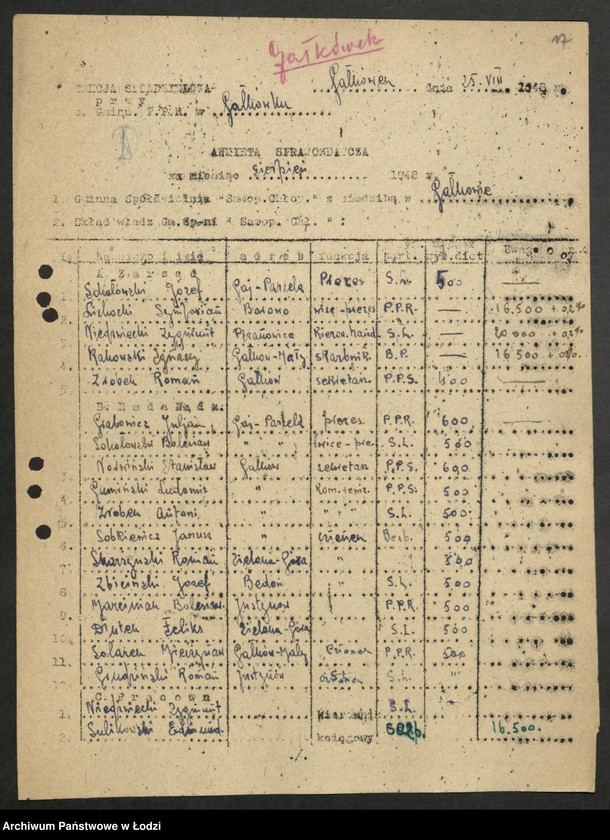 Gałkówek
17
Gałkówek dnia 25.VIII. 1948 r.
Gminy P.P.R. w Gałkówku
ANKIETA SPRAWOZDAWCZA
za miesiąc sierpień 1948 r.
1. Gminna Spółdzielnia "Samop. Chłop." z siedzibą w Gałkowie
2. Skład władz Gm. Sp-ni "Samop. Chł." :
Nazwisko i imię adres funkcja part. wys. diet
A. Zarząd
1. Sokołowski Józef Gaj-Parcela Prezes S.L. 500 —
Szymforian Borowo wice-prezes P.P.R. — 16.500 + 0,2%
Niedźwiecki Zygmunt Kierow. hand. S.L. — 20 000 + 0,2%
Rakowski Ignacy Gałków-Mały skarbnik B.P. — 16 500
5. Zrobek Roman Gałków sekretarz P.P.S. 400 —
B. Rada Nadz.
Grabowicz Julian Gaj-Parcela prezes P.P.R. 600 —
Sokołowski Bolesław " " wice-pre. S.L. 500
3. Stanisław Gałków sekretarz P.P.S. 600
Gumiński Ludomir " kom. rewiz. P.P.S. 500
Zrobek Antoni " " S.L. 500
Sobkiewicz Janusz " członek Bezp. 500
Skarżyński Roman Zielona-Góra " 500
8. Zbiciński Józef Bedoń " S.L. 500
9. Marciniak Bolesław Justynów P.P.R. 500
10. Feliks Zielona-Góra S.L. 500
11. Solarek Mieczysław Gałków-Mały członek P.P.R. 500
Roman Justynów członek S.L. "
C. Pracown.
1. Niedźwiecki Zygmunt kierownik S.L.
2. Sulikowski Edmund księgowy Bezp. 16.500.
Archiwum Państwowe w Łodzi